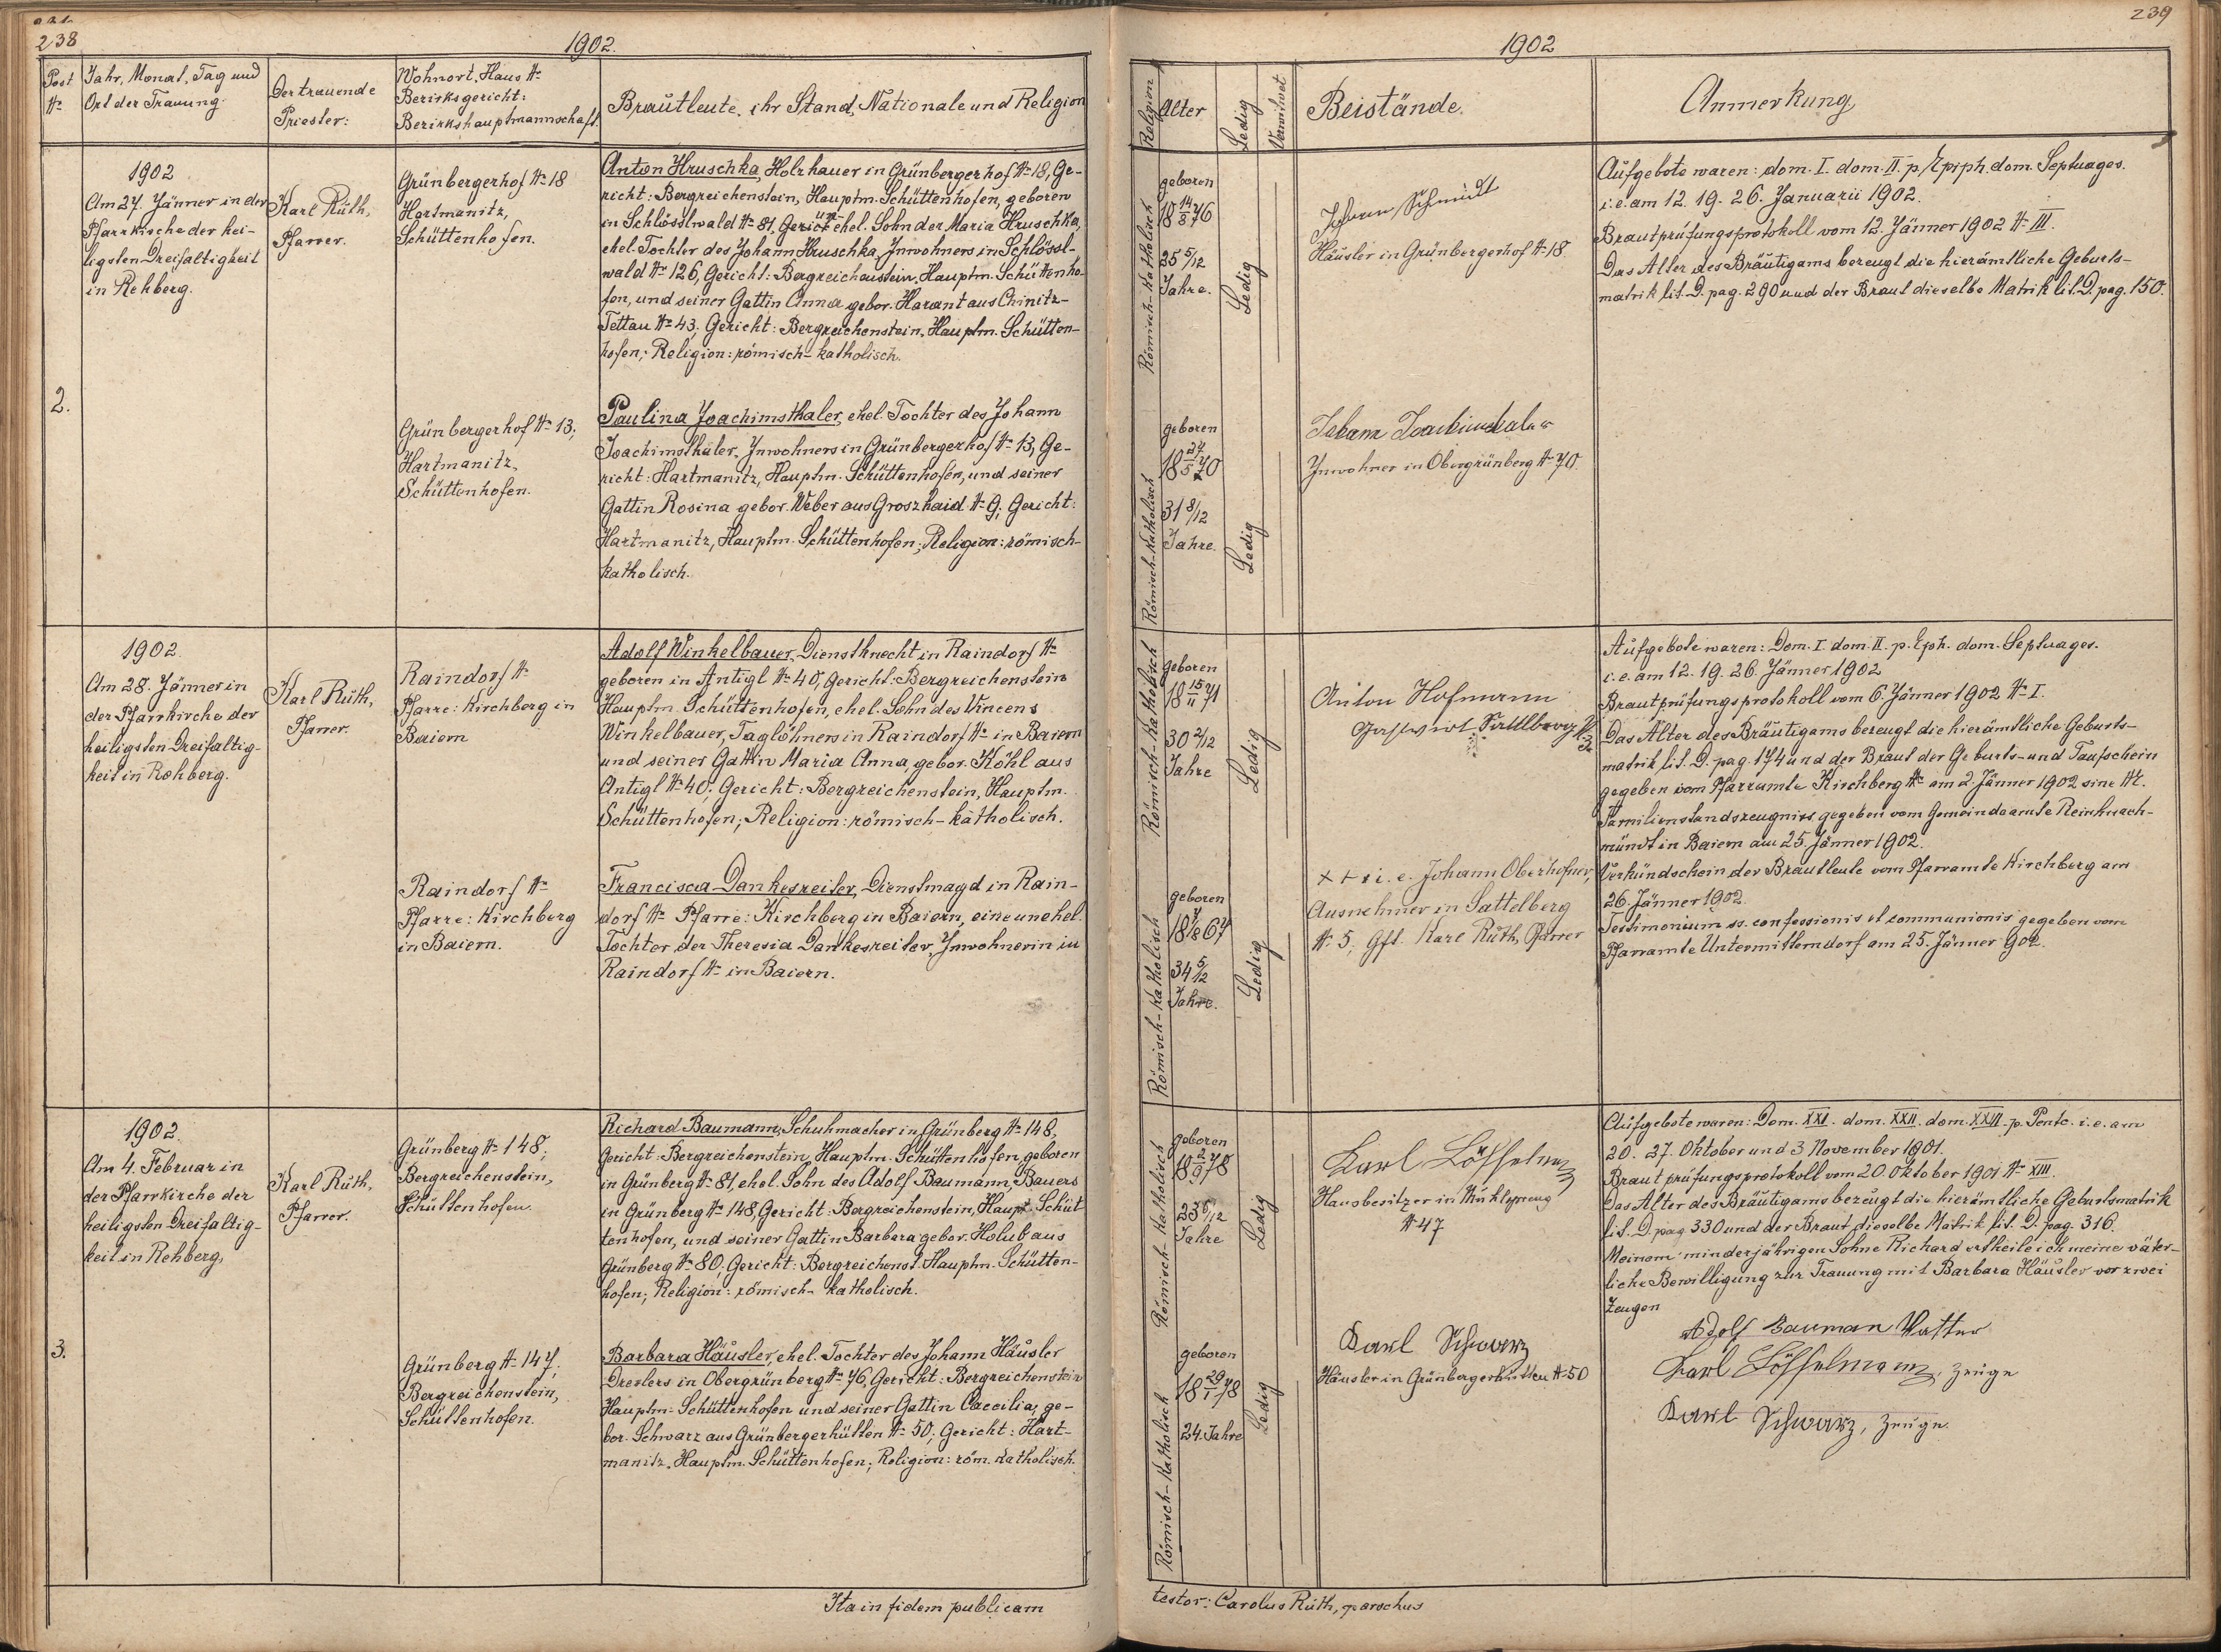 238
1902.
Post
№
Jahr, Monat, Tag und
Ort der Trauung.
Der trauende
Priester:
Wohnort, Haus №
Bezirksgericht:
Bezirkshauptmannschaft.
Brautleute, ihr Stand, Nationale und Religion
1902
Am 27. Jänner in der
Pfarrkirche der hei-
ligsten Dreifaltigkeit
in Rehberg.
Karl Rüth,
Pfarrer.
Grünbergerhof № 18
Hartmanitz,
Schüttenhofen.
Anton Hruschka, Holzhauer in Grünbergerhof № 18, Ge-
richt: Bergreichenstein, Hauptm. Schüttenhofen, geboren
in Schlösslwald № 81, Gericht ehel. Sohn der Maria Hruschka,
ehel. Tochter des Johann Hruschka, Inwohners in Schlössl-
wald № 126, Gericht: Bergreichenstein, Hauptm. Schüttenho-
fen, und seiner Gattin Anna gebor. Harant aus Chinitz-
Tettau № 43; Gericht: Bergreichenstein, Hauptm. Schütten-
hofen; Religion: römisch-katholisch.
2.
Grünbergerhof № 13,
Hartmanitz,
Schüttenhofen.
Paulina Joachimsthaler, ehel. Tochter des Johann
Joachimsthaler, Inwohners in Grünbergerhof № 13, Ge-
richt: Hartmanitz, Hauptm. Schüttenhofen, und seiner
Gattin Rosina gebor. Weber aus Groszhaid № 9; Gericht:
Hartmanitz, Hauptm. Schüttenhofen; Religion: römisch-
katholisch.
1902.
Am 28. Jänner in
der Pfarrkirche der
heiligsten Dreifaltig-
keit in Rehberg.
Karl Rüth,
Pfarrer.
Raindorf №
Pfarre: Kirchberg in
Baiern
Adolf Winkelbauer, Dienstknecht in Raindorf №
geboren in Antigl № 40, Gericht: Bergreichenstein
Hauptm. Schüttenhofen, ehel. Sohn des Vincens
Winkelbauer, Taglöhners in Raindorf № in Baiern
und seiner Gattin Maria Anna, gebor. Köhl aus
Antigl № 40; Gericht: Bergreichenstein, Hauptm.
Schüttenhofen; Religion: römisch-katholisch.
Raindorf №
Pfarre: Kirchberg
in Baiern.
Francisca Dankesreiter, Dienstmagd in Rain-
dorf № Pfarre: Kirchberg in Baiern, eine unehel.
Tochter der Theresia Dankesreiter, Inwohnerin in
Raindorf № in Baiern.
1902.
Am 4. Februar in
der Pfarrkirche der
heiligsten Dreifaltig-
keit in Rehberg,
Karl Rüth,
Pfarrer.
Grünberg № 148,
Bergreichenstein,
Schüttenhofen.
Richard Baumann, Schuhmacher in Grünberg № 148,
Gericht: Bergreichenstein, Hauptm. Schüttenhofen, geboren
in Grünberg № 81, ehel. Sohn des Adolf Baumann, Bauers
in Grünberg № 148, Gericht: Bergreichenstein, Haupt. Schüt
tenhofen, und seiner Gattin Barbara gebor. Holub aus
Grünberg № 80. Gericht: Bergreichenst. Hauptm. Schütten-
hofen; Religion: römisch-katholisch.
3.
Grünberg № 147,
Bergreichenstein,
Schüttenhofen.
Barbara Häusler, ehel. Tochter des Johann Häusler
Drexlers in Obergrünberg № 76, Gericht: Bergreichenstein
Hauptm. Schüttenhofen und seiner Gattin Caecilia, ge-
bor. Schwarz aus Grünbergerhütten № 50; Gericht: Hart-
manitz, Hauptm. Schüttenhofen; Religion: röm. katholisch.
Ita in fidem publicam
239
1902
Religion
Alter
Ledig
Verwitwet
Beistände.
Anmerkung
Römisch-katholisch
geboren
18 14/8 76
25 5/12
Jahre.
Ledig
Johann Schmidt
Häusler in Grünbergerhof № 18.
Aufgebote waren: dom. I. dom. II. p. Epiph. dom. Septuages.
i. e. am 12. 19. 26. Januarii 1902.
Brautprüfungsprotokoll vom 12. Jänner 1902 № III.
Das Alter des Bräutigams bezeugt die hierämtliche Geburts-
matrik lit. D. pag. 290 und der Braut dieselbe Matrik lit. D. pag. 150.
Römisch-katholisch
geboren
18 27/5 70
31 8/12
Jahre.
Ledig
Inwohner in Obergrünberg № 70.
Römisch-katholisch
geboren
18 15/11 71
30 2/12
Jahre
Ledig
Anton Hofmann
Gastwirt Sattlberg
Aufgebote waren: Dom. I. dom. II. p. Eph. dom. Septuages.
i. e. am 12. 19. 26. Jänner 1902
Brautprüfungsprotokoll vom 6. Jänner 1902 № I.
Das Alter des Bräutigams bezeugt die hierämtliche Geburts-
matrik lit. D. pag. 174 und der Braut der Geburts- und Taufschein
gegeben vom Pfarramte Kirchberg № am 2. Jänner 1902 sine №.
Familienstandszeugniss gegeben vom Gemeindeamte
in Baiern am 25. Jänner 1902.
Verkündschein der Brautleute vom Pfarramte Kirchberg am
26. Jänner 1902.
Testimonium ss. confessionis et communionis gegeben vom
Pfarramte Untermitterndorf am 25. Jänner 902.
Römisch-katholisch
geboren
18 7/8 67
34 5/12
Jahre.
Ledig
+ + + i. e. Johann Oberhofer,
Ausnehmer in Sattelberg
№ 5, Gft. Karl Rüth, Pfarrer
Römisch-katholisch
geboren
18 2/9 78
23 6/12
Jahre
Ledig
Karl Löffelmann
Hausbesitzer in
№ 47
Aufgebote waren: Dom. XXI. dom. XXII. dom. XXIII. p. Pentc. i. e. am
20. 27. Oktober und 3 November 1901.
Brautprüfungsprotokoll vom 20. Oktober 1901 № XIII.
Das Alter des Bräutigams bezeugt die hierämtliche Geburtsmatrik
lit. D. pag. 330 und der Braut dieselbe Matrik lit. D. pag. 316.
Meinem minderjährigen Sohne Richard ertheile ich meine väter-
liche Bewilligung zur Trauung mit Barbara Häusler vor zwei
Zeugen
Adolf Bauman Vatter
Karl Löffelmann, Zeuge
Karl Schwarz, Zeuge.
Römisch-katholisch
geboren
18 29/1 78
24. Jahre
Ledig
Karl Schwarz
Häusler in Grünbergerhütten № 50
testor: Carolus Rüth, parochus